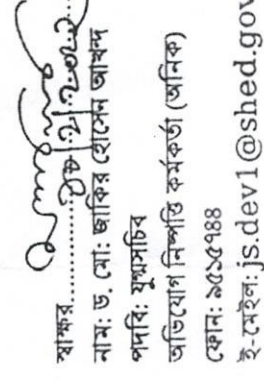 স্বাক্ষর..............................
নাম: ড. মো: জাকির হোসেন আখন্দ
পদবি: যুগ্মসচিব
অভিযোগ নিষ্পত্তি কর্মকর্তা (অনিক)
ফোন: ৯৫১৫৭৪৪
ই-মেইল: js.dev1@shed.gov